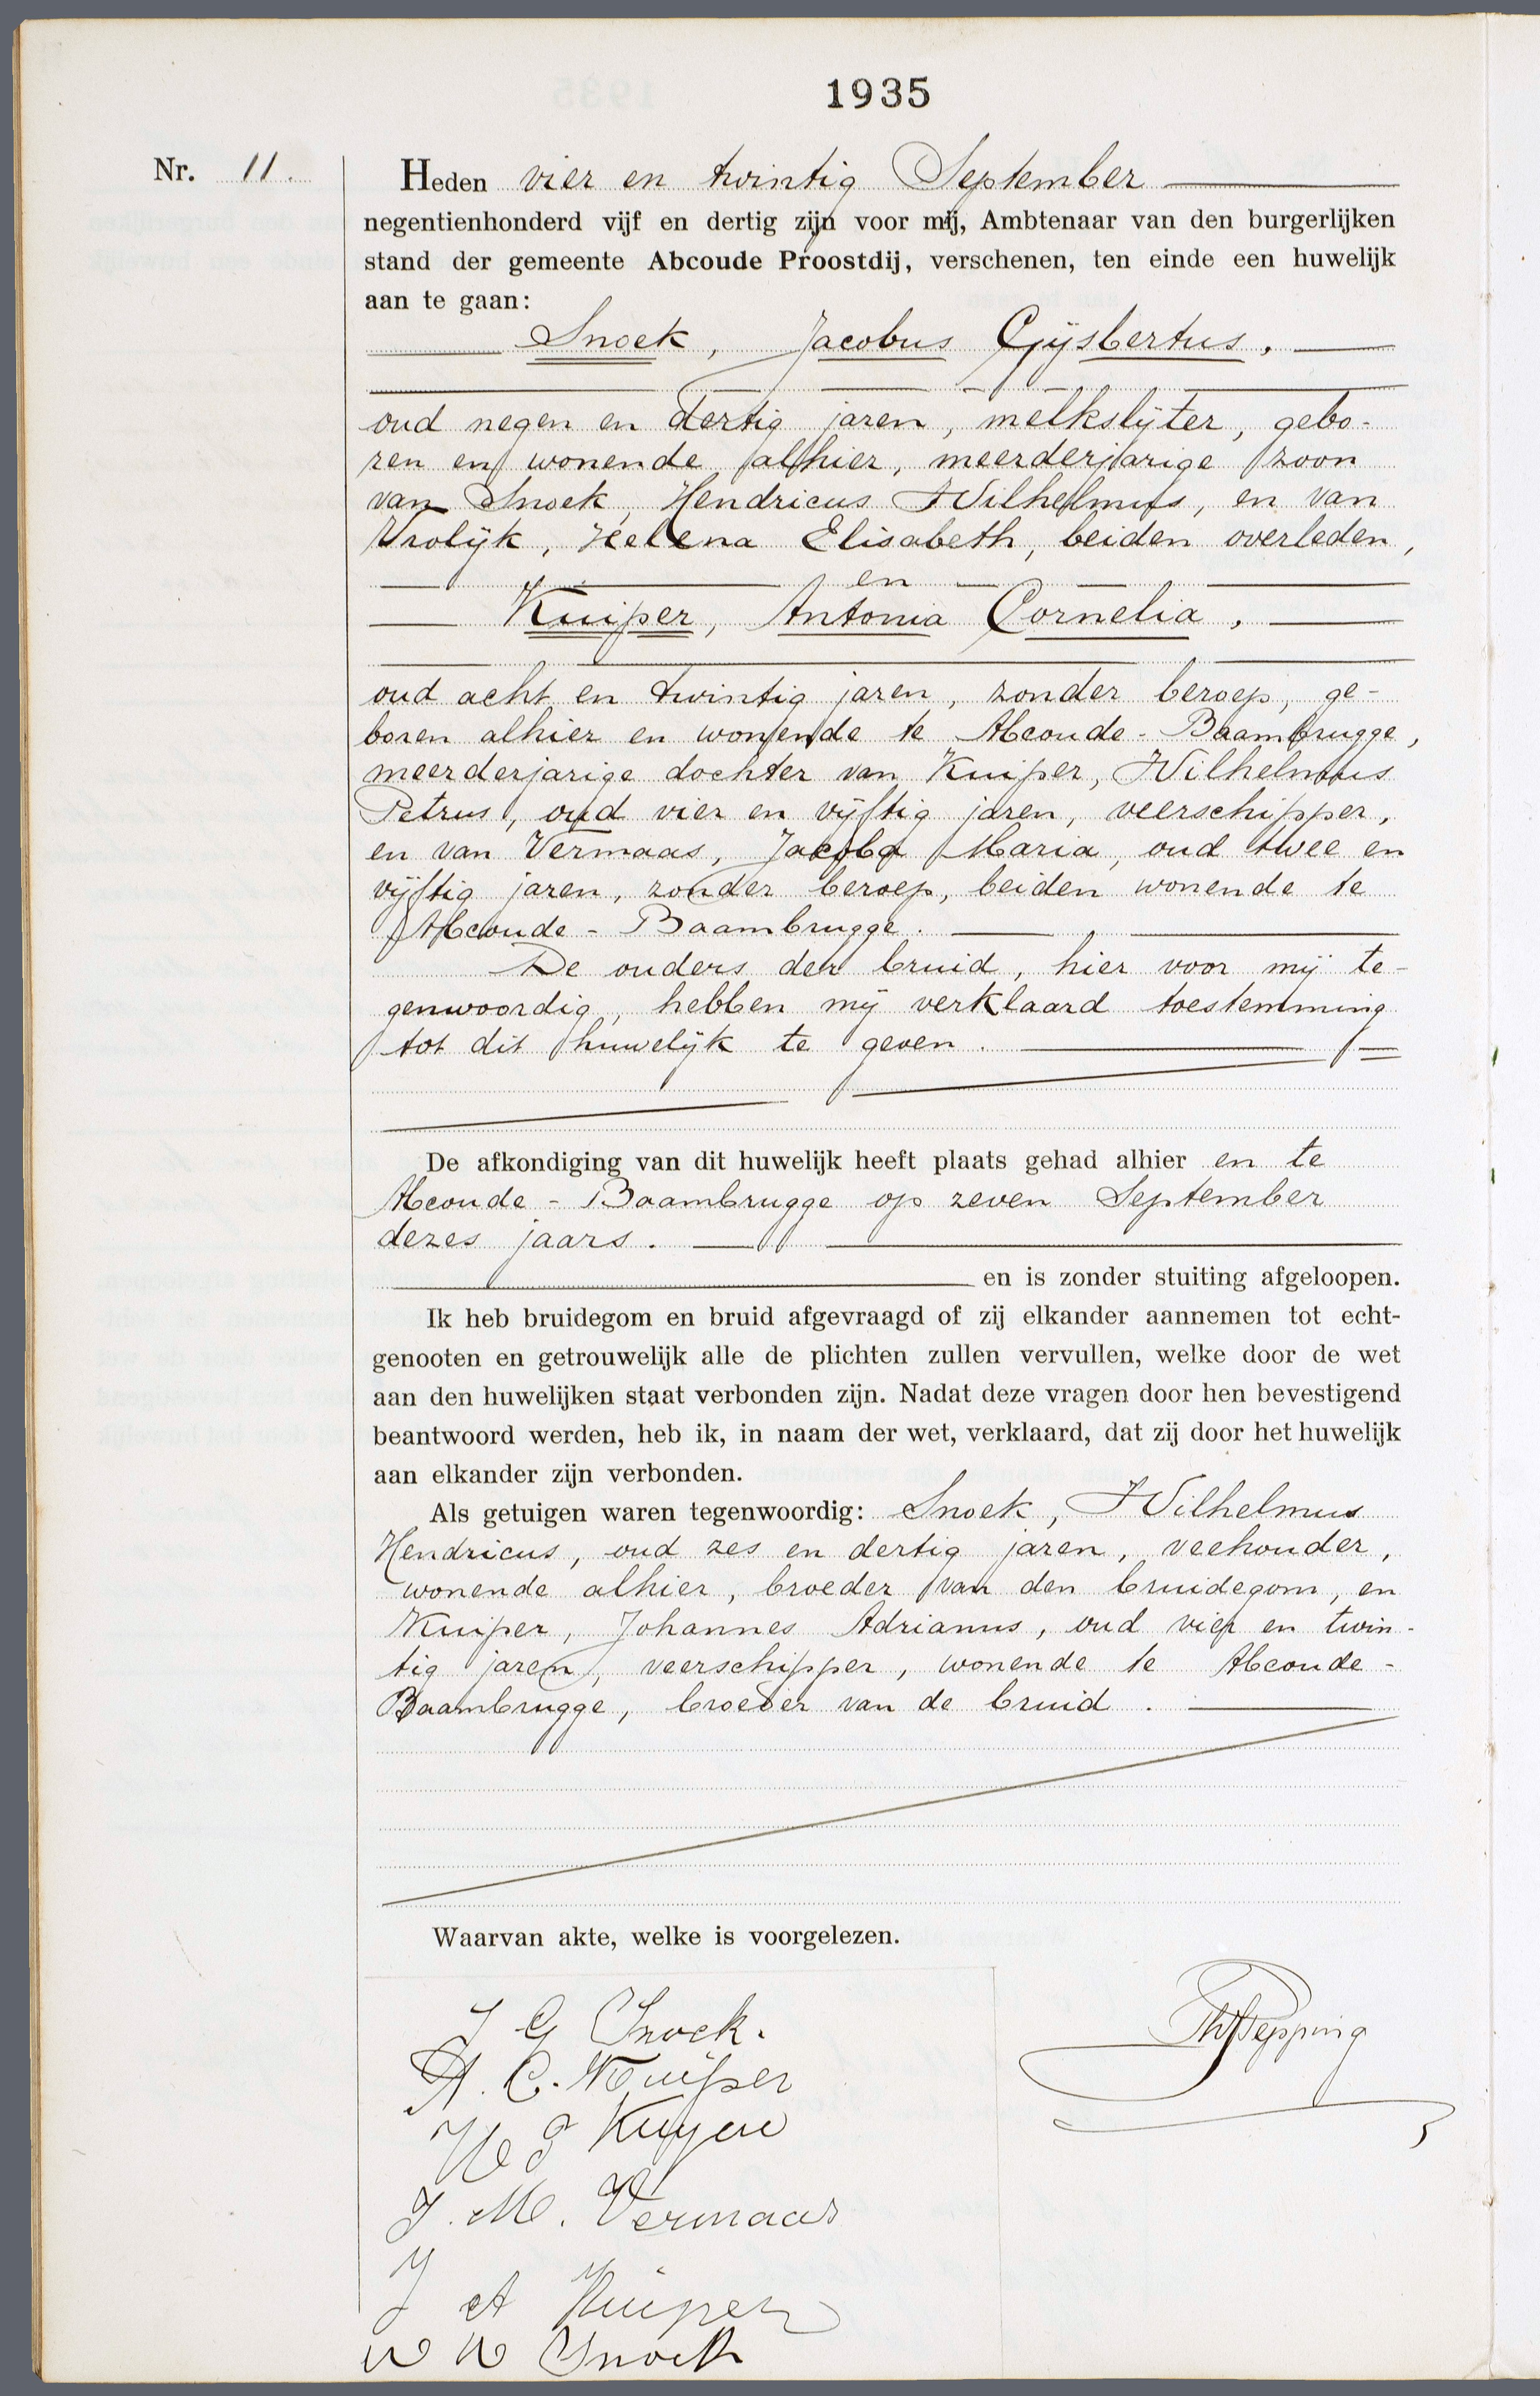 1935
Nr. 11.
Heden vier en twintig September
negentienhonderd vijf en dertig zijn voor mij, Ambtenaar van den burgerlijken
stand der gemeente Abcoude Proostdij, verschenen, ten einde een huwelijk
aan te gaan:
Snoek, Jacobus Gijsbertus,
oud negen en dertig jaren, melkslijter, gebo-
ren en wonende alhier, meerderjarige zoon
van Snoek, Hendricus Wilhelmus, en van
Vrolijk, Helena Elisabeth, beiden overleden,
en
Kuiper, Antonia Cornelia,
oud acht en twintig jaren, zonder beroep, ge-
boren alhier en wonende te Abcoude-Baambrugge,
meerderjarige dochter van Kuiper, Wilhelmus
Petrus, oud vier en vijftig jaren, veerschipper,
en van Vermaas, Jacoba Maria, oud twee en
vijftig jaren, zonder beroep, beiden wonende te
Abcoude-Baambrugge.
De ouders der bruid, hier voor mij te-
genwoordig, hebben mij verklaard toestemming
tot dit huwelijk te geven.
De afkondiging van dit huwelijk heeft plaats gehad alhier en te
Abcoude-Baambrugge op zeven September
dezes jaars.
en is zonder stuiting afgeloopen.
Ik heb bruidegom en bruid afgevraagd of zij elkander aannemen tot echt-
genooten en getrouwelijk alle de plichten zullen vervullen, welke door de wet
aan den huwelijken staat verbonden zijn. Nadat deze vragen door hen bevestigend
beantwoord werden, heb ik, in naam der wet, verklaard, dat zij door het huwelijk
aan elkander zijn verbonden.
Als getuigen waren tegenwoordig: Snoek, Wilhelmus
Hendricus, oud zes en dertig jaren, veehouder,
wonende alhier, broeder van den bruidegom, en
Kuiper, Johannes Adrianus, oud vier en twin-
tig jaren, veerschipper, wonende te Abcoude-
Baambrugge, broeder van de bruid.
Waarvan akte, welke is voorgelezen.
J G Snoek.
A. C. Kuiper
J. M. Vermaas
J A Kuiper
W H Snoek